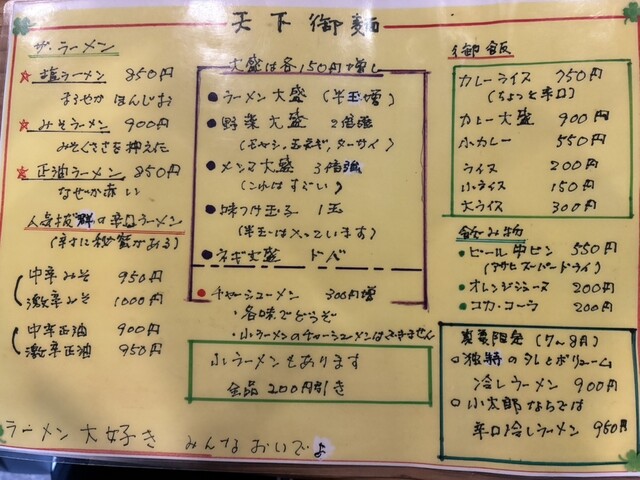 天下御麺
ザ・ラーメン
塩ラーメン 850円
まろやか ほんじお
みそラーメン 900円
みそくささを抑えた
正油ラーメン 850円
なぜか赤い
人気抜群の辛口ラーメン
(辛さに秘密がある)
中辛みそ 950円
激辛みそ 1000円
中辛正油 900円
激辛正油 950円
大盛は各150円増し
ラーメン大盛 (半玉増)
野菜大盛 2倍強
(モヤシ、玉ネギ、ターサイ)
メンマ大盛 3倍強
(これはすごい)
味つけ玉子 1玉
(半玉は入っています)
ネギ大盛 ドバ
チャーシューメン 300円増
・各味でどうぞ
・小ラーメンのチャーシューメンはできません
小ラーメンもあります
全品200円引き
御飯
カレーライス 750円
(ちょっと辛口)
カレー大盛 900円
小カレー 550円
ライス 200円
小ライス 150円
大ライス 300円
飲み物
ビール中ビン 550円
(アサヒスーパードライ)
オレンジジュース 200円
コカ・コーラ 200円
真夏限定 (7〜8月)
独特のタレとボリューム
冷しラーメン 900円
小太郎ならでは
辛口冷しラーメン 950円
ラーメン大好き みんなおいでよ